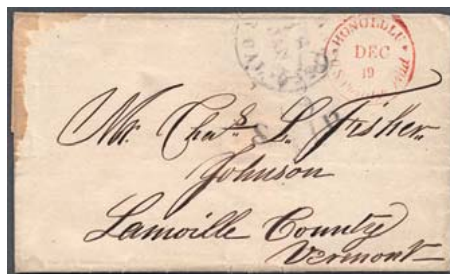 HONOLULU
DEC
19
PAID
JAN
CAL.
Mr. Chas. L. Fisher.
Johnson
Lamoille County
Vermont